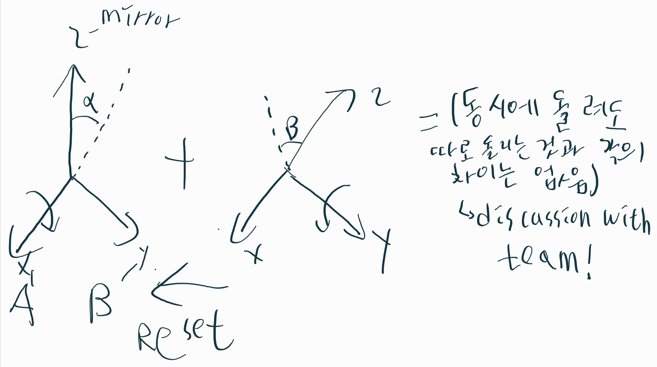 z-mirror
α
X
y
A
B
+
β
z
x
y
Reset
= (동시에 돌려도
따로 돌리는 것과 각의
차이는 없음)
↳ discussion with
team!